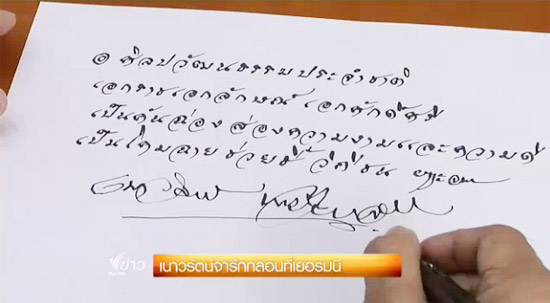 ๑ ศิลปวัฒนธรรมประจำชาติ
เอกราชเอกลักษณ์ เอกศักดิ์ศรี
เป็นคันฉ่อง ส่องความงามและความดี
เป็นโคมฉาย ช่วยชี้ วิถีชน
ข่าว
เนาวรัตน์จารึกกลอนที่เยอรมนี